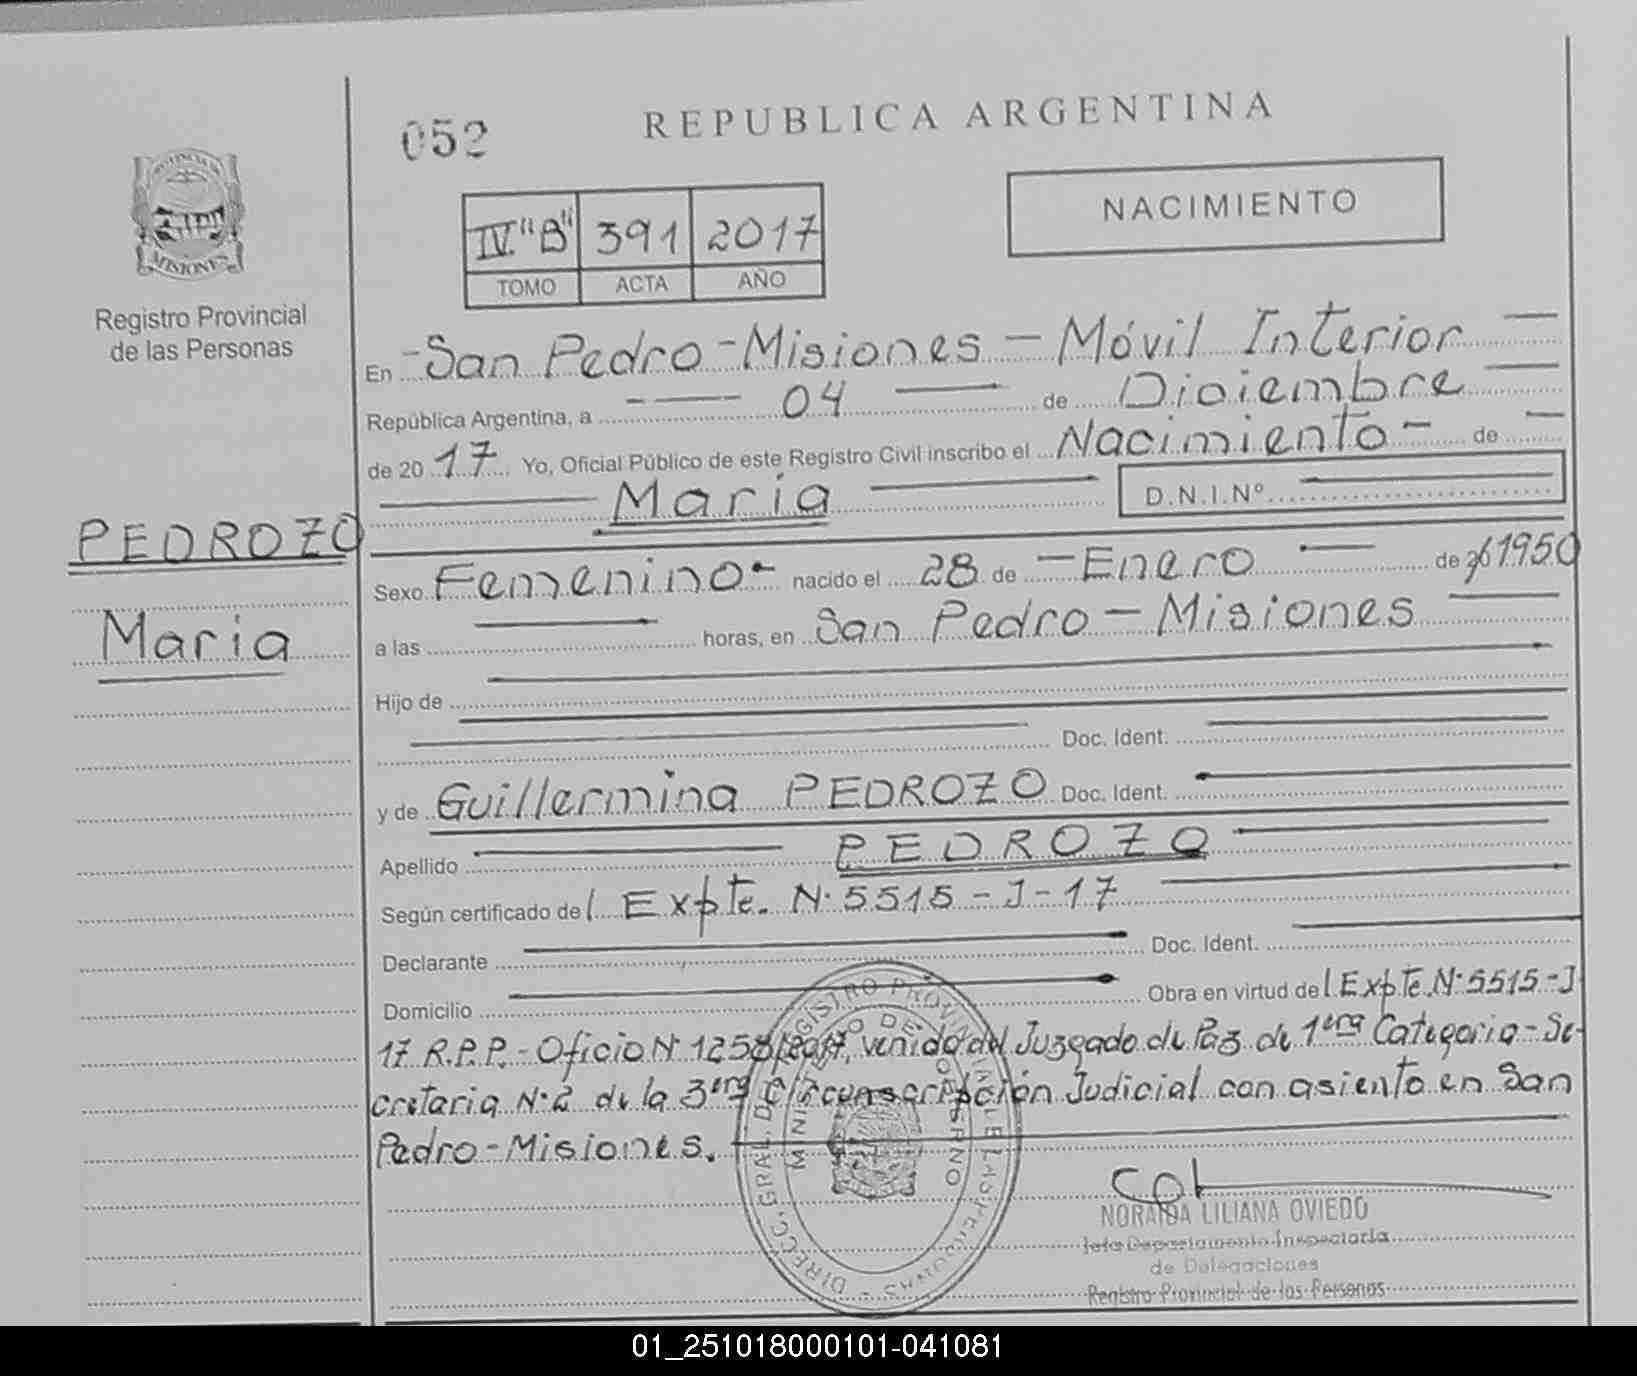 052
REPUBLICA ARGENTINA
NACIMIENTO
IV "B" 391 2017
TOMO ACTA AÑO
MISIONES
Registro Provincial
de las Personas
En - San Pedro - Misiones - Móvil Interior
República Argentina, a 04 de Diciembre
de 2017 Yo, Oficial Público de este Registro Civil inscribo el Nacimiento - de
Maria D.N.I.Nº
PEDROZO
Maria
Sexo Femenino - nacido el 28 de - Enero de 1950
a las horas, en San Pedro - Misiones
Hijo de
Doc. Ident.
y de Guillermina PEDROZO Doc. Ident.
Apellido PEDROZO
Según certificado del Expte. N: 5515 - J - 17
Declarante Doc. Ident.
Domicilio Obra en virtud del Expte. N: 5515 - J
17 R.P.P. - Oficio N: 1258/2017, venido del Juzgado de Paz de 1era Categoria - Se-
cretaria N: 2 de la 3era Circunscripción Judicial con asiento en San
Pedro - Misiones.
DIRECC. GRAL. DE REGISTRO PROVINCIAL DE LAS PERSONAS
MINISTERIO DE GOBIERNO
NORAIDA LILIANA OVIEDO
Jefa Departamento Inspectoría
de Delegaciones
Registro Provincial de las Personas
01_251018000101-041081